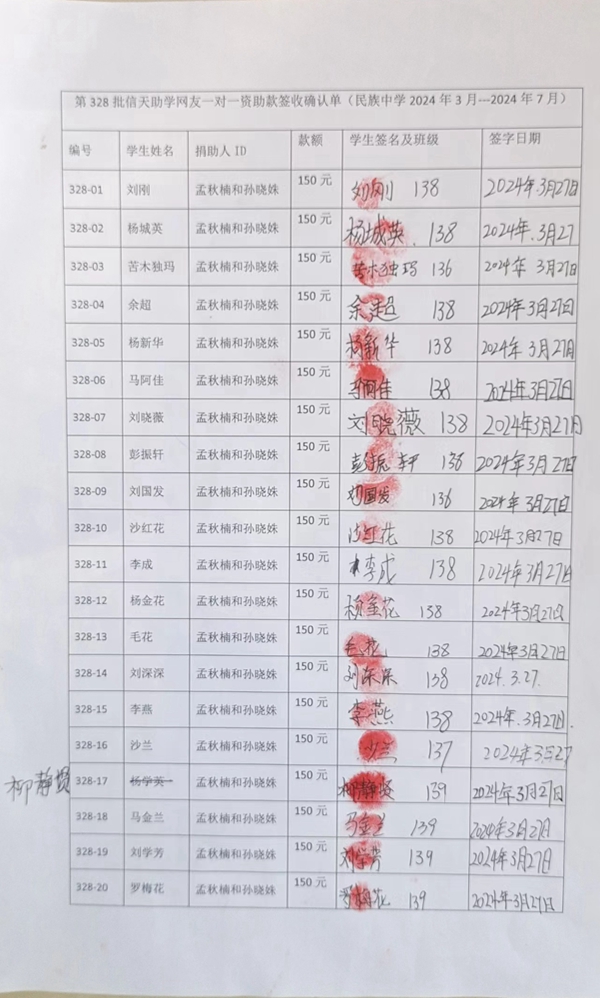 第 328 批信天助学网友一对一资助款签收确认单（民族中学 2024 年 3 月---2024 年 7 月）
编号 学生姓名 捐助人 ID 款额 学生签名及班级 签字日期
328-01 刘刚 孟秋楠和孙晓姝 150 元 刘刚 138 2024年3月27日
328-02 杨城英 孟秋楠和孙晓姝 150 元 杨城英. 138 2024年.3月27
328-03 苦木独玛 孟秋楠和孙晓姝 150 元 苦木独玛 136 2024年 3月27日
328-04 余超 孟秋楠和孙晓姝 150 元 余超 138 2024年3月27日
328-05 杨新华 孟秋楠和孙晓姝 150 元 杨新华 138 2024年 3月27日
328-06 马阿佳 孟秋楠和孙晓姝 150 元 马阿佳 138 2024年3月27日
328-07 刘晓薇 孟秋楠和孙晓姝 150 元 刘晓薇 138 2024年3月27日
328-08 彭振轩 孟秋楠和孙晓姝 150 元 彭振轩 136 2024年3月27日
328-09 刘国发 孟秋楠和孙晓姝 150 元 刘国发 136 2024年3月27日
328-10 沙红花 孟秋楠和孙晓姝 150 元 沙红花 138 2024年3月27日
328-11 李成 孟秋楠和孙晓姝 150 元 李成 138 2024年3月27日
328-12 杨金花 孟秋楠和孙晓姝 150 元 杨金花 138 2024年3月27日
328-13 毛花 孟秋楠和孙晓姝 150 元 毛花 138 2024年3月27日
328-14 刘深深 孟秋楠和孙晓姝 150 元 刘深深 138 2024.3.27.
328-15 李燕 孟秋楠和孙晓姝 150 元 李燕 138 2024年.3月27日.
328-16 沙兰 孟秋楠和孙晓姝 150 元 沙兰 137 2024年3月27
柳静贤 328-17 杨学英 孟秋楠和孙晓姝 150 元 柳静贤 139 2024年3月27日
328-18 马金兰 孟秋楠和孙晓姝 150 元 马金兰 139 2024年3月27日
328-19 刘学芳 孟秋楠和孙晓姝 150 元 刘学芳 139 2024年3月27日
328-20 罗梅花 孟秋楠和孙晓姝 150 元 罗梅花 139 2024年3月27日